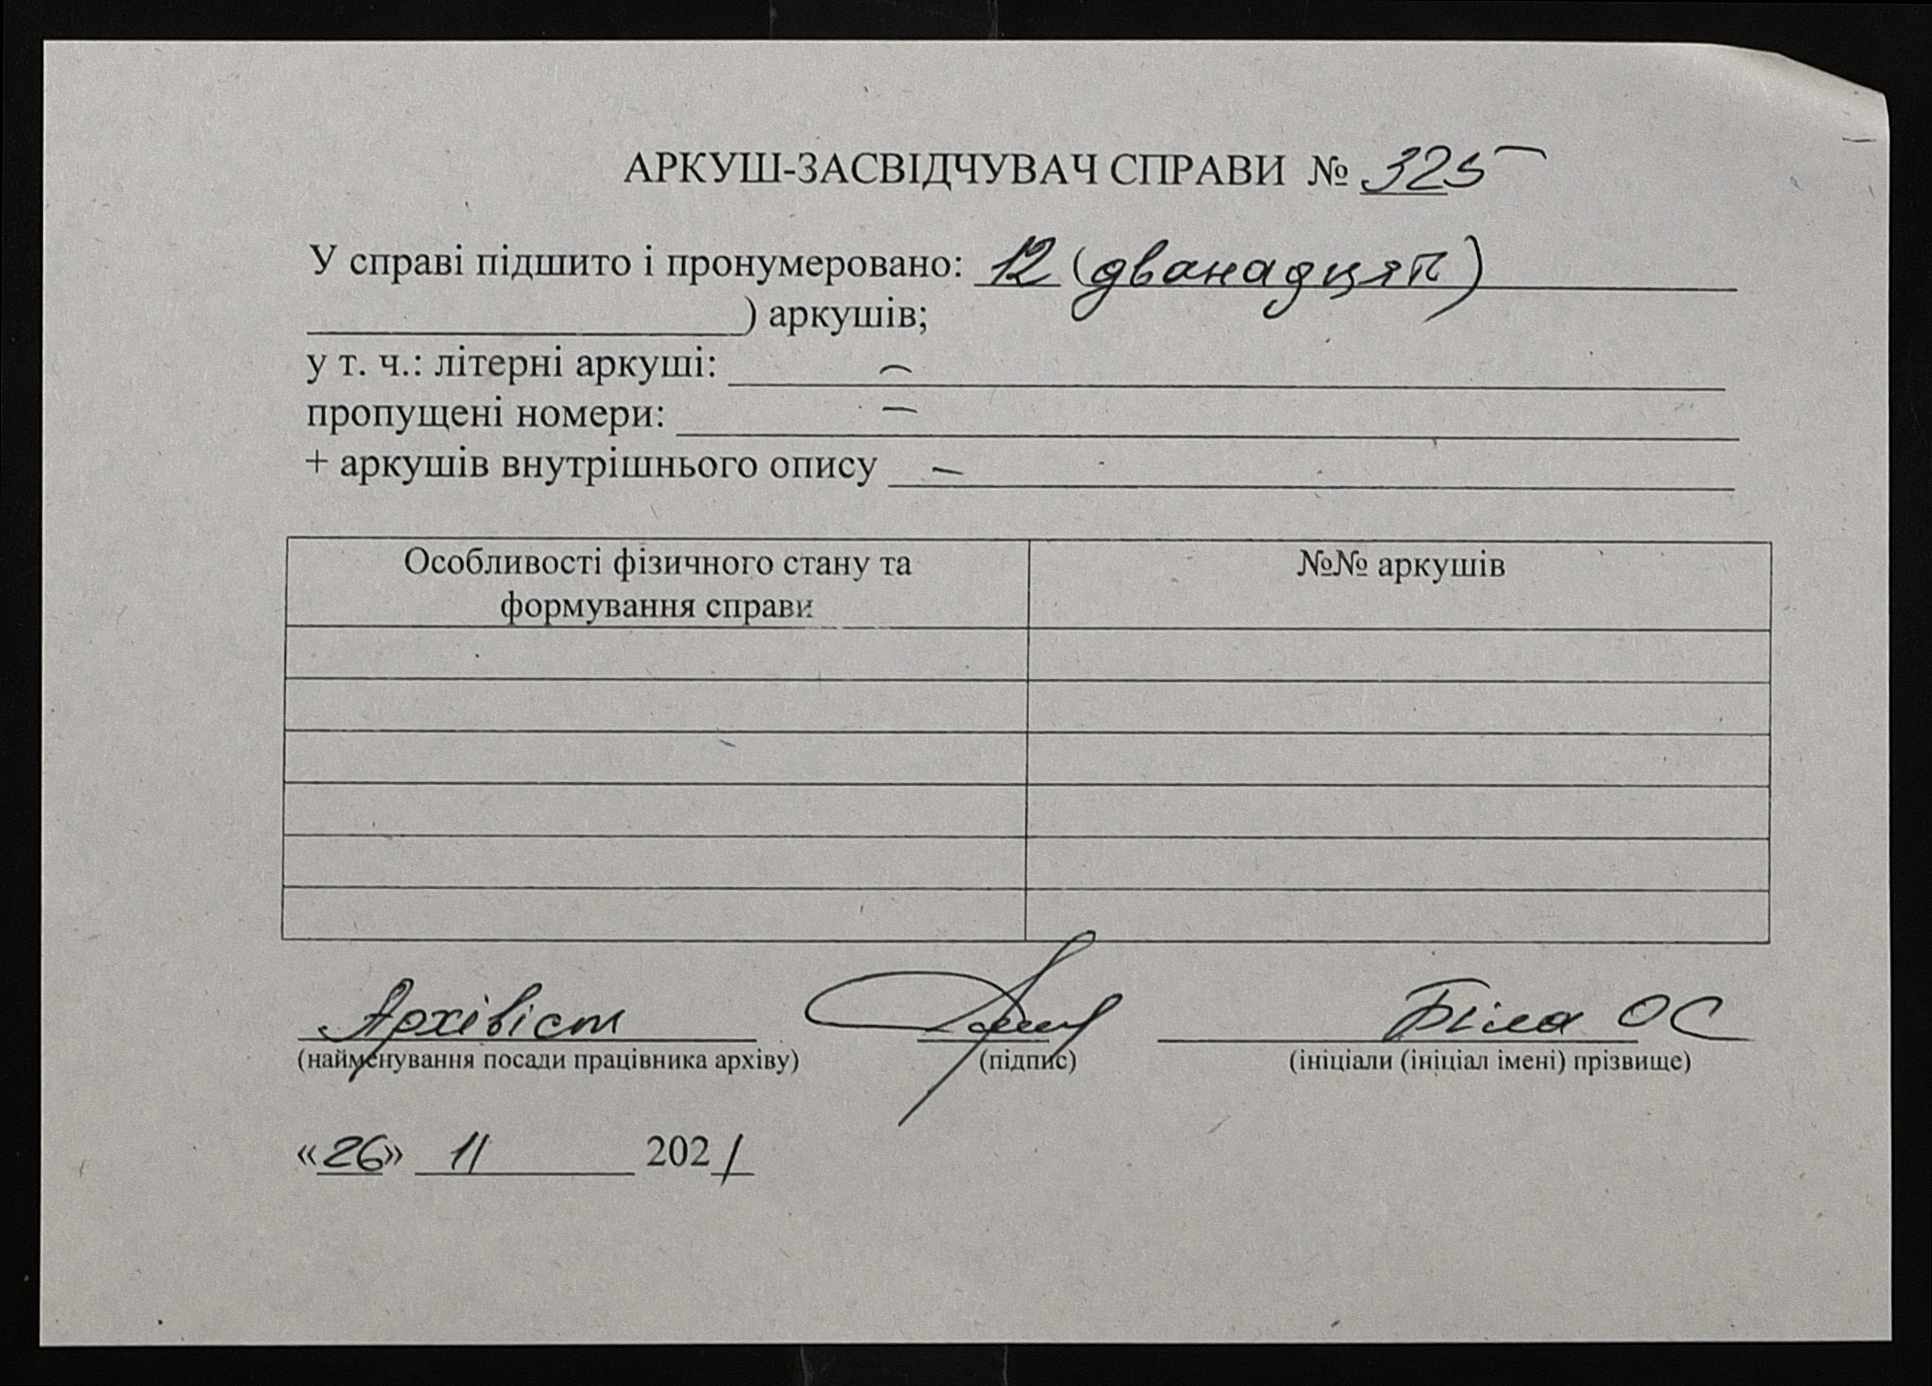 АРКУШ-ЗАСВІДЧУВАЧ СПРАВИ № 325
У справі підшито і пронумеровано: 12 (дванадцять)
) аркушів;
у т. ч.: літерні аркуші: –
пропущені номери: –
+ аркушів внутрішнього опису –
Особливості фізичного стану та
формування справи
№№ аркушів
Архівіст Біла ОС
(найменування посади працівника архіву) (підпис) (ініціали (ініціал імені) прізвище)
«26» 11 2021